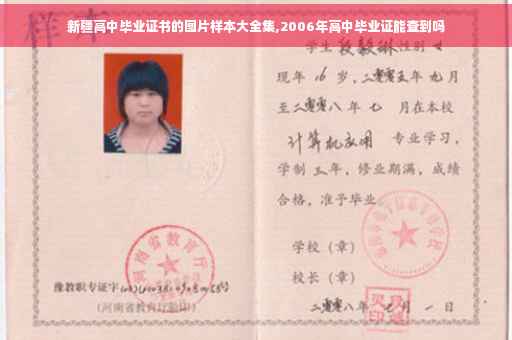 新疆高中毕业证书的图片样本大全集,2006年高中毕业证能查到吗
样本
学生段毅琳性别女
现年16岁,二零零五年九月
至二零零八年七月在本校
计算机应用专业学习,
学制三年,修业期满,成绩
合格,准予毕业
学校(章)
校长(章)
二零零八年 月一日
河南省教育厅
豫教职专证字
(河南省教育厅验印)